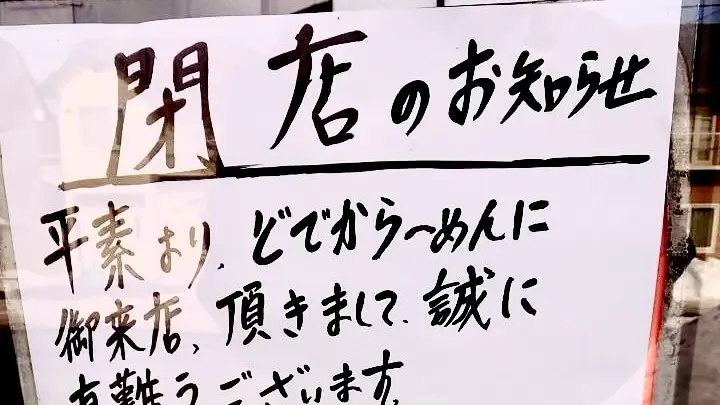 閉店のお知らせ
平素より、どでからーめんに
御来店、頂きまして、誠に
有難うございます。